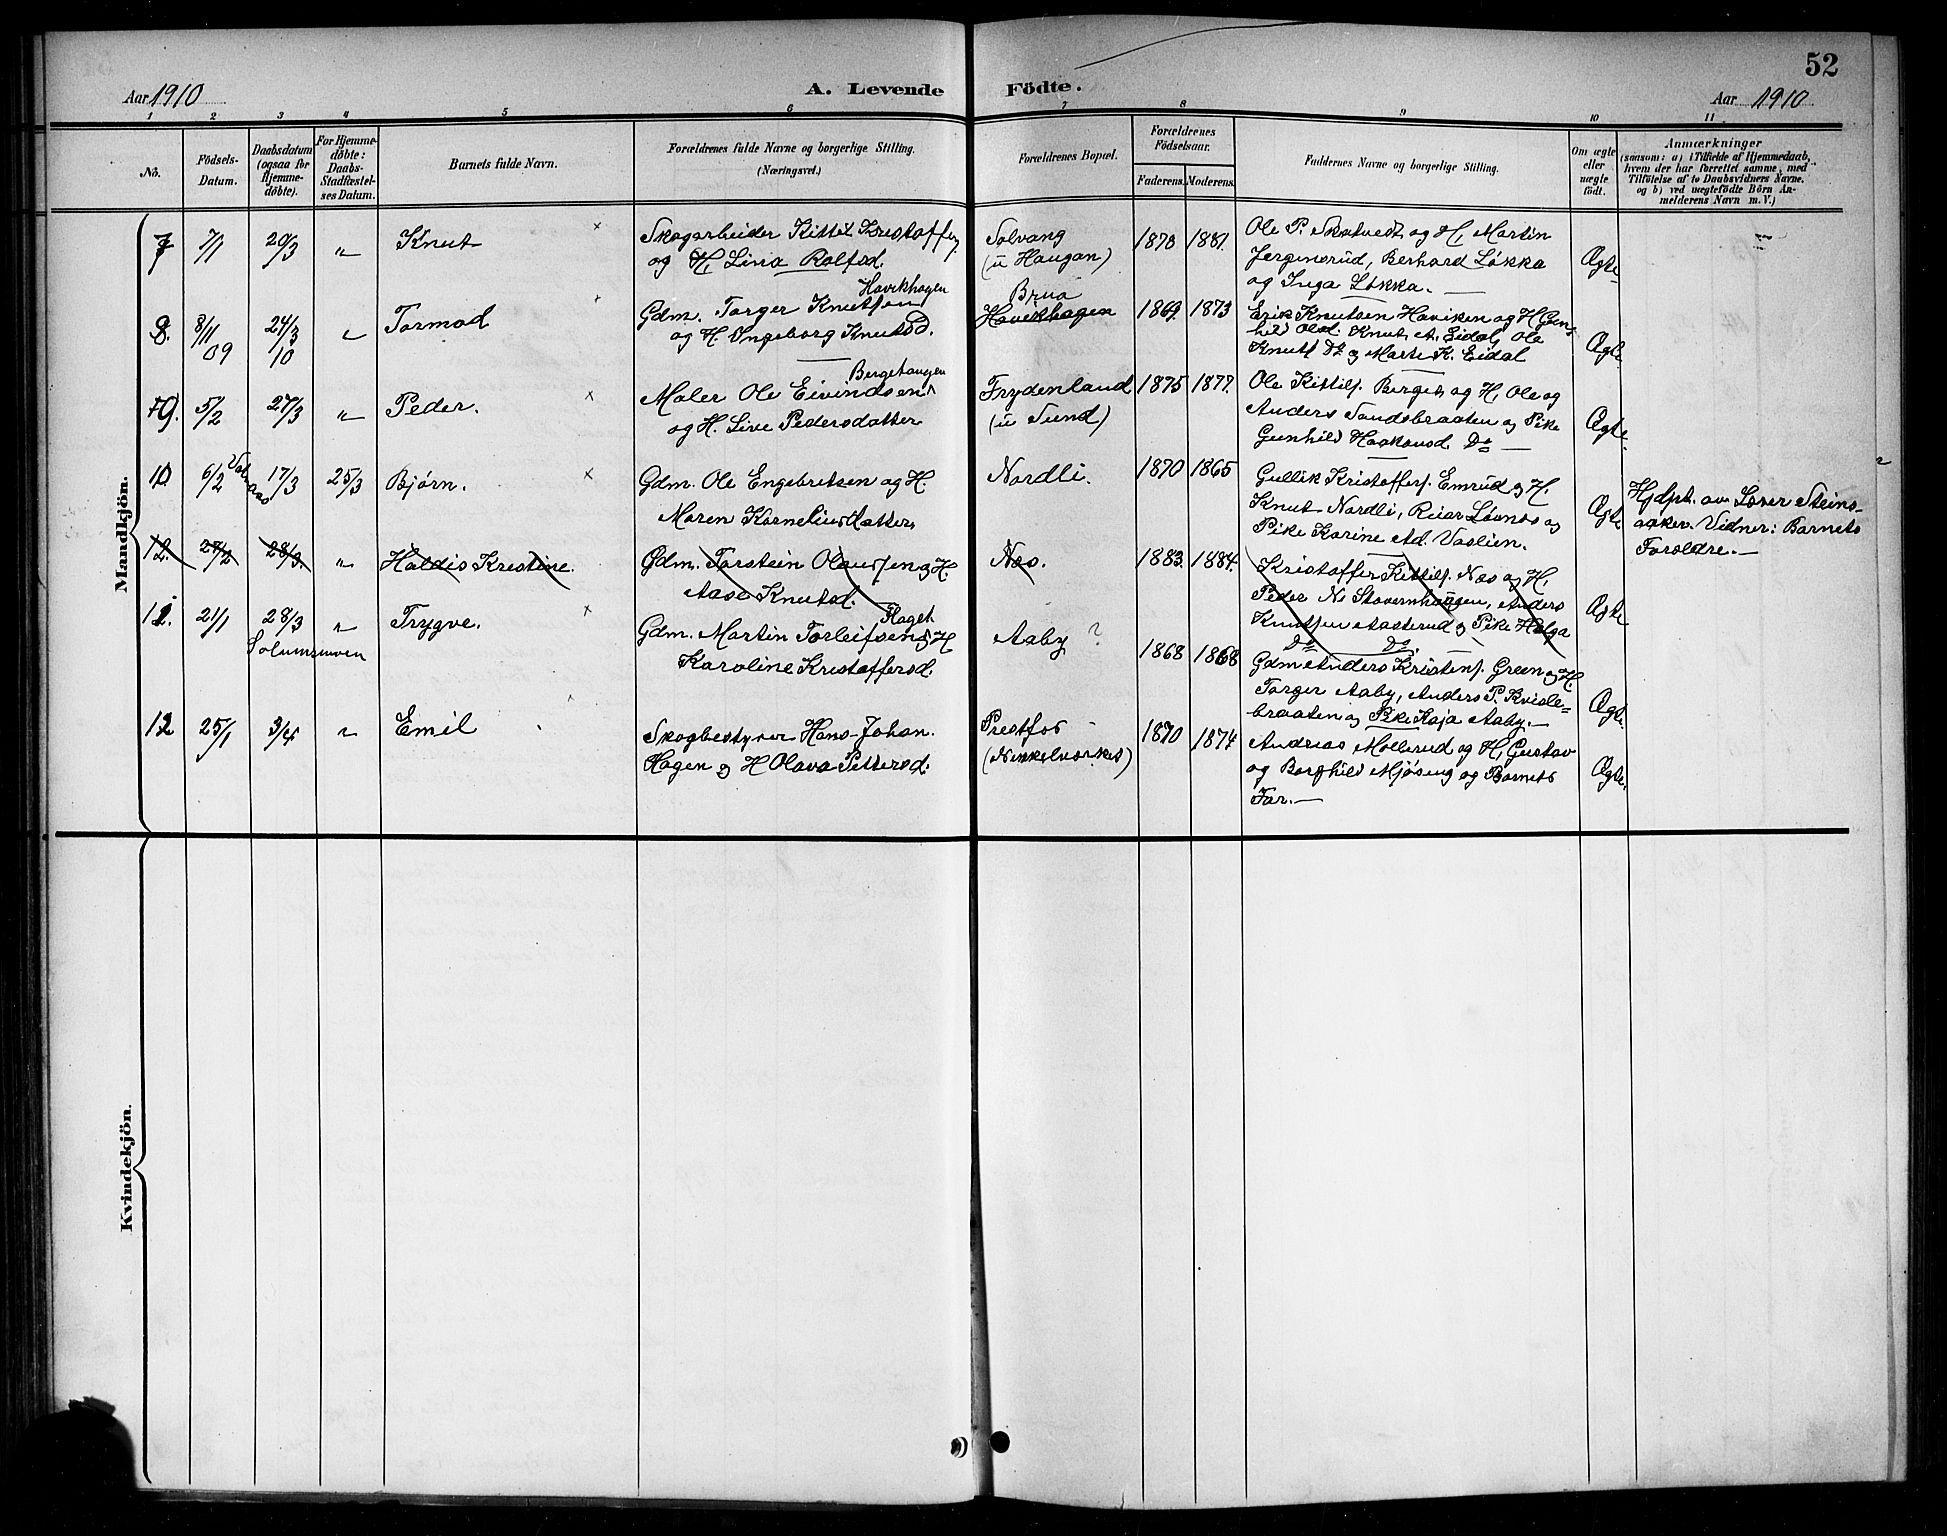 52
Aar 1910
A. Levende Födte.
Aar 1910
1 2 3 4 5 6 7 8 9 10 11
No.
Födsels-
Datum.
Daabsdatum
(ogsaa for
Hjemme-
döbte).
For Hjemme-
döbte:
Daabs-
Stadfæstel-
ses Datum.
Barnets fulde Navn.
Forældrenes fulde Navne og borgerlige Stilling.
(Næringsvei.)
Forældrenes Bopæl.
Forældrenes
Födselsaar.
Faderens. Moderens.
Faddernes Navne og borgerlige Stilling.
Om ægte
eller
uægte
födt.
Anmærkninger
(saasom: a) i Tilfælde af Hjemmedaab,
hvem der har forrettet samme, med
Tilföielse af to Daabsvidners Navne,
og b) ved uægtefödte Börn An-
melderens Navn m. V.)
Mandkjön.
7 7/1 20/3 „ Knut
Skogarbeider Kittil Kristoffers.
og H. Lina Rolfsd.
Solvang
(u Haugan)
1870 1881.
Ole P. Skatvedt og H, Martin
Jergenrud, Berhard Løkka
og Inga Løkka.
Ægte
8. 8/11 09 24/3 10 „ Tormod
Havikhagen
Gdm. Torger Knutsen
og H. Ingeborg Knutsd.
Brua
Havikhagen
1869. 1873
Erik Knutsen Haviken og H, Gun-
hild Olsd. Knut A. Eidal, Ole
Knuts. Do og Marte K. Eidal
Ægte
9. 5/2 27/3 „ Peder.
Bergetangen
Maler Ole Eivindsen
og H. Live Pedersdatter
Frydenland
(u Sund)
1875 1877.
Ole Kittils. Berget og H, Ole og
Anders Sandsbraaten og Pike
Gunhild Haakonsd. Do
Ægte.
10. 6/2 17/3 25/3 Bjørn.
Gdm. Ole Engebretsen og H.
Maren Korneliusdatter
Nordli.
1870 1865
Gullik Kristoffers. Emrud og H.
Knut Nordli, Reiar Løvnes og
Pike Karine Ad. Vaslien.
Ægte
Hj.dpt. av Lærer Steins-
aaker. Vidner: Barnets
Forældre.
12. 27/2 28/3. „ Haldis Kristine.
Gdm. Torstein Olaussen og H.
Aase Knutsd.
Næs.
1883. 1884.
Kristoffer Kittils. Næs og H.
Peder Ns Stavernhaugen, Anders
Knutsen Aasterud og Pike Helga
Do Do.
Ægte
11. 21/1 28/3 „ Trygve.
Solumsmoen
Haget
Gdm. Martin Torleifsen og H
Karoline Kristoffersd.
Aaby ?
1868 1868
Gdm Anders Kristens. Green og H.
Torger Aaby, Anders P. Kvisle-
braaten og Pike Kaja Aaby.
Ægte
12 25/1 3/4 „ Emil
Skogbestyrer Hans Johan.
Hagen og H Olava Pettersd.
Prestfos
(Nikkelværket)
1870 1874
Andreas Mollerud og H, Gustav
og Borghild Mjøseng og Barnets
Far.
Ægte.
Kvindekjön.